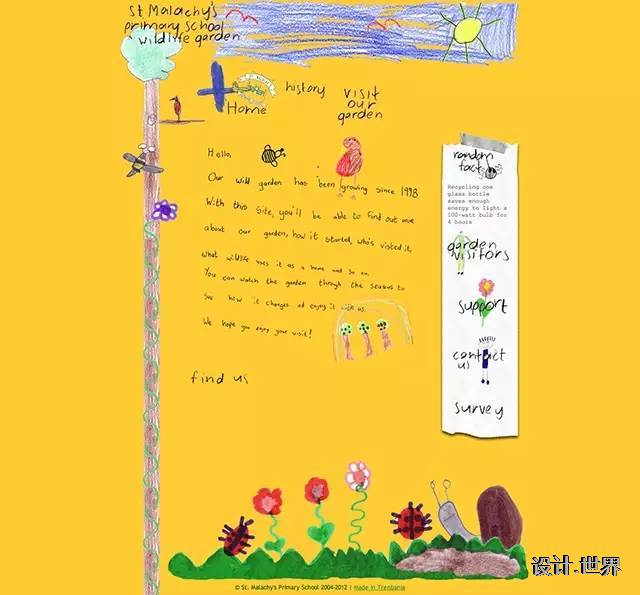 St. Malachy's
primary school
wildlife garden
Home
history
visit
our
garden
Hello,
Our wild garden has been growing since 1998
With this site, you'll be able to find out more
about our garden, how it started, who's visited it,
what wildlife uses it as a home and so on.
You can watch the garden through the seasons to
see how it changes and enjoy it with us.
We hope you enjoy your visit!
find us
random
fact
Recycling one
glass bottle
saves enough
energy to light a
100-watt bulb for
4 hours
garden
visitors
support
contact
us
survey
© St. Malachy's Primary School 2004-2012 | Made in Trenbania
设计.世界